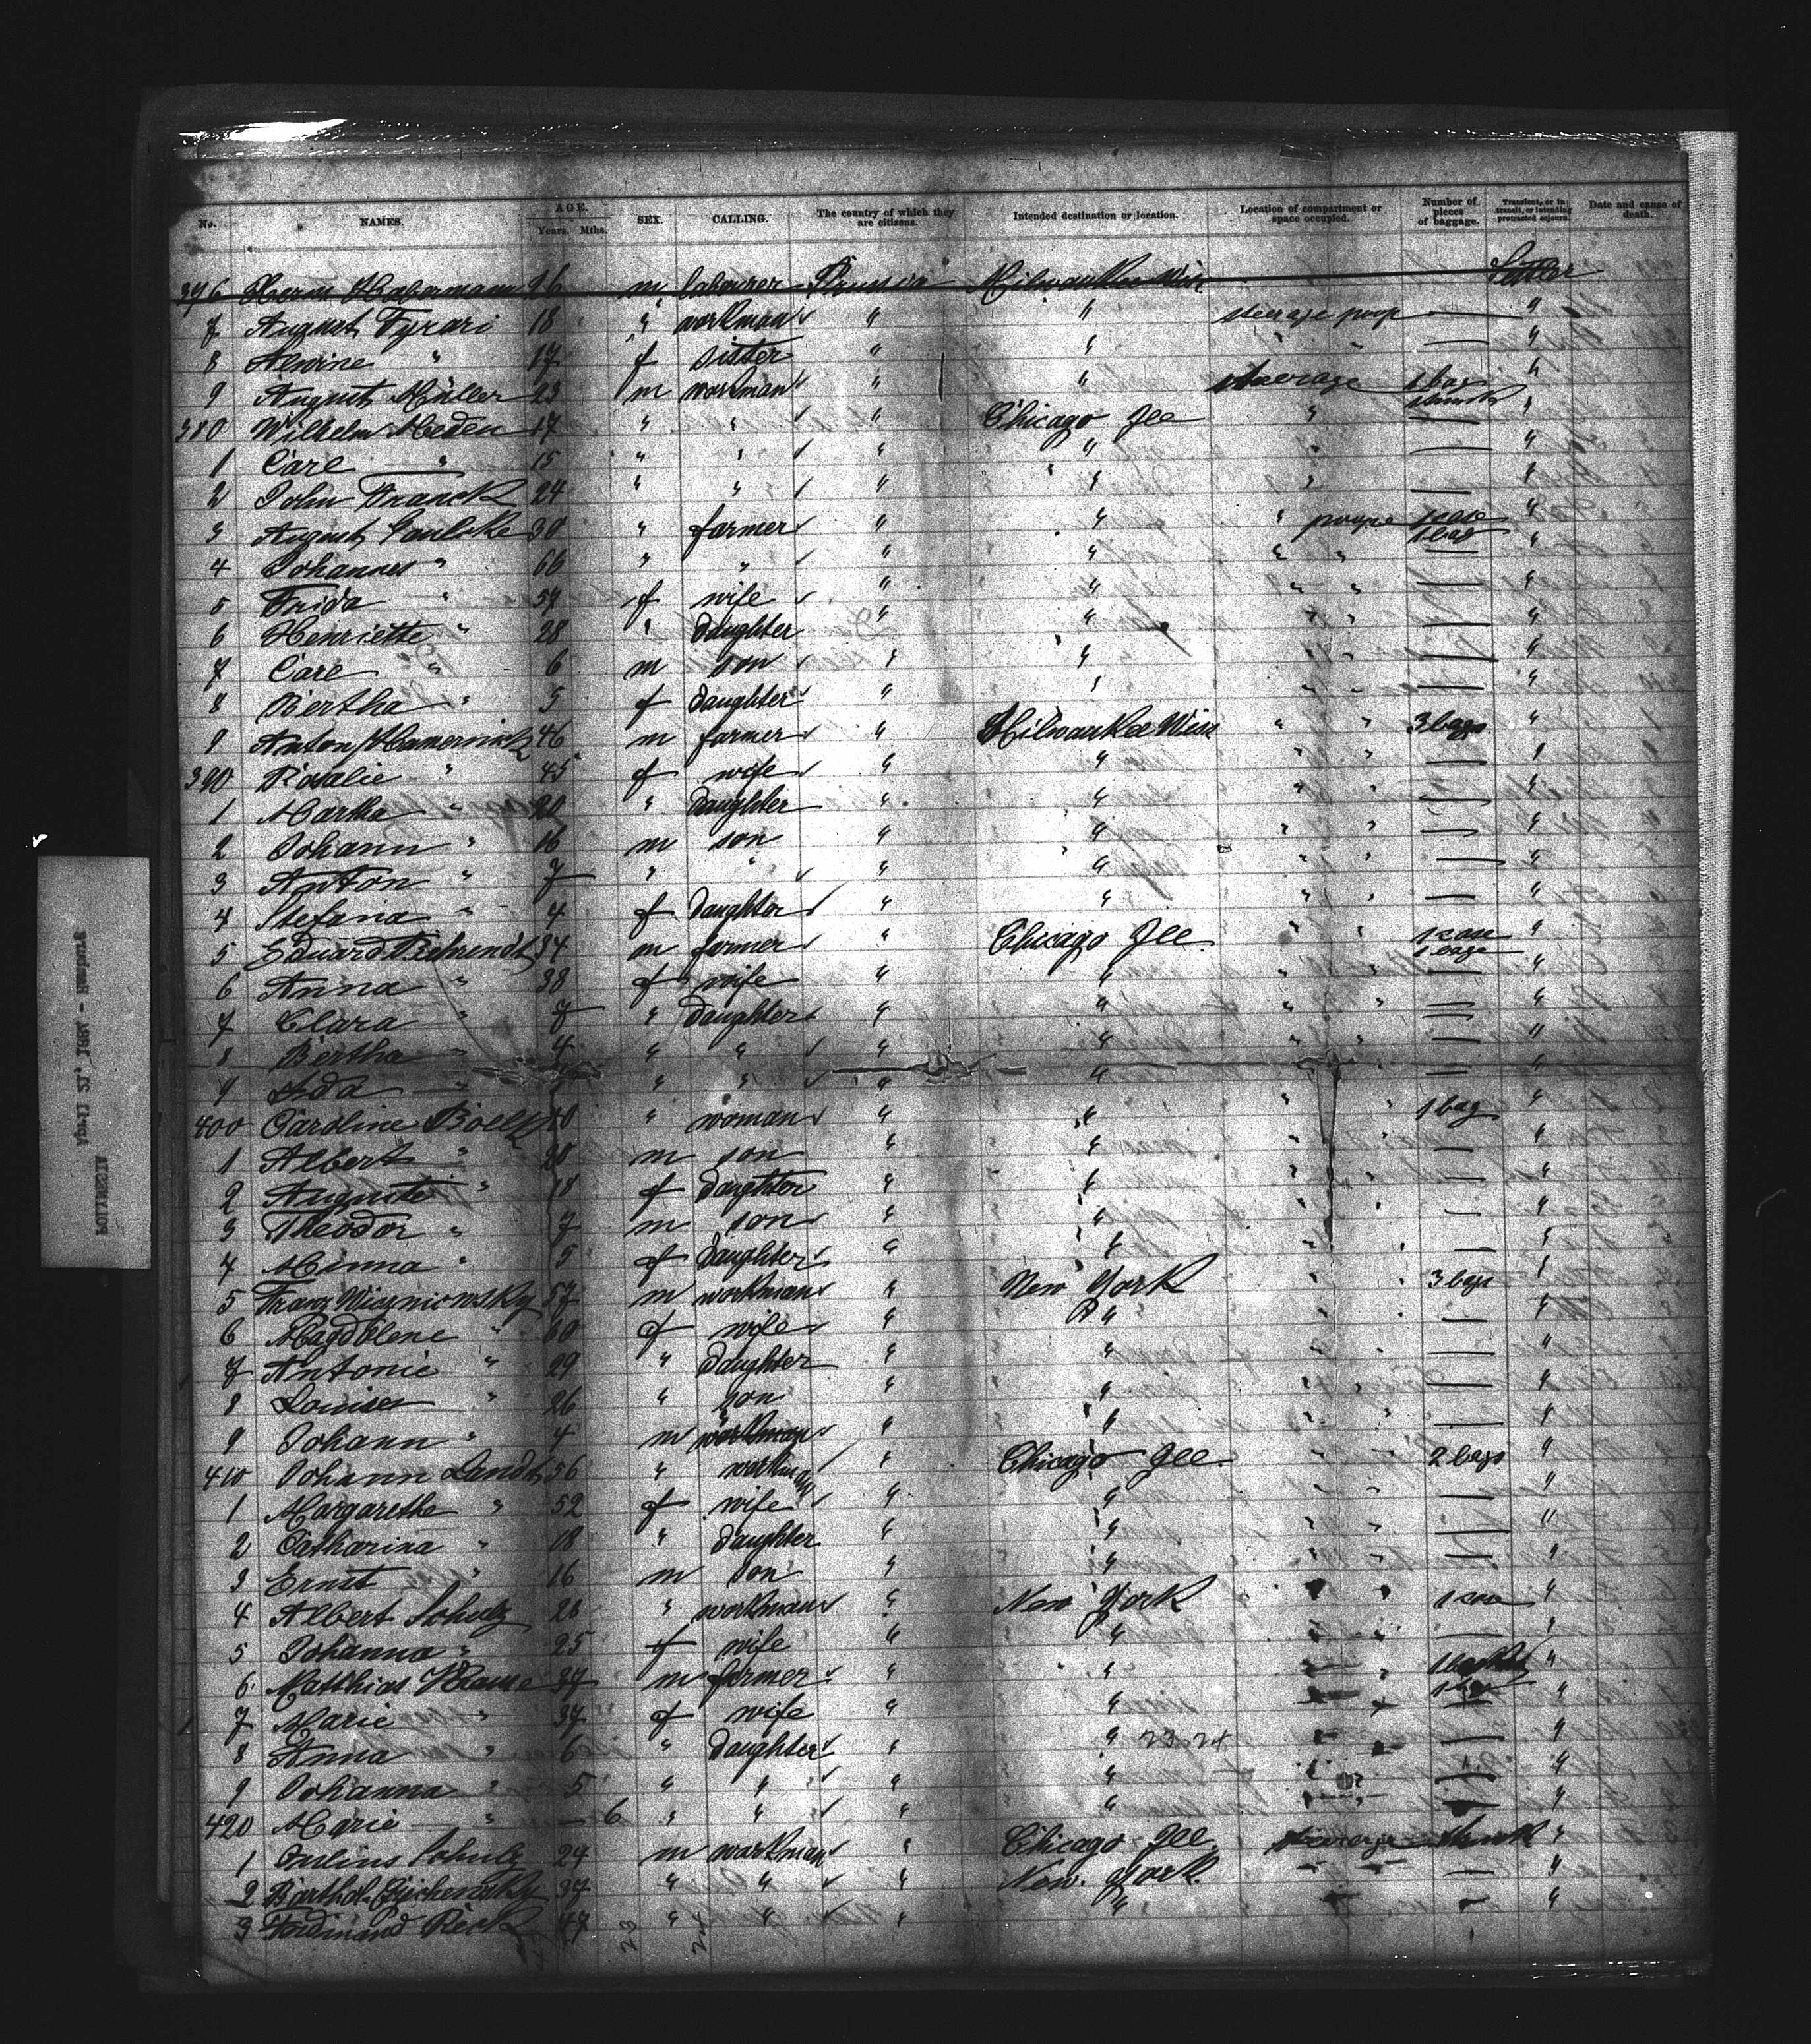 No. NAMES. AGE. Years. Mths. SEX. CALLING. The country of which they are citizens. Intended destination or location. Location of compartment or space occupied. Number of pieces of baggage. Transient, or in transit, or intending protracted sojourn. Date and cause of death.
376 Herm Habermann 26 m labourer Prussia Milwaukee Wisc Settler
7 August Tyrari 18 " workman " " steerage poop — "
8 Alwine " 17 f sister " " " " — "
9 August Müller 23 m workman " " steerage 1 bag "
380 Wilhelm Meden 17 " " " Chicago Ill " — "
1 Carl " 15 " " " " " — "
2 John Franck 24 " " " " " — "
3 August 30 " farmer " " " poope 1 case 1 bag "
4 Johannes " 66 " " " " " " — "
5 Frida " 57 f wife " " " " — "
6 Henriette " 28 " daughter " " " " — "
7 Carl " 6 m son " " " " — "
8 Bertha " 5 f daughter " " " " — "
9 Anton Hamernick 46 m farmer " Milwaukee Wisc " " 3 bags "
390 Rosalie " 45 f wife " " " " — "
1 Martha " 20 " daughter " " " " — "
2 Johann " 16 m son " " " " — "
3 Anton " 7 " " " " " " — "
4 Stefania " 4 f daughter " " " " — "
5 Eduard Behrendt 34 m farmer " Chicago Ill. " " 1 case 1 bage "
6 Anna " 38 f wife " " " " — "
7 Clara " 7 " daughter " " " " — "
8 Bertha " 4 " " " " " " — "
9 Ida " " " " " — "
400 Caroline Boelk 40 " woman " " " " 1 bag "
1 Albert " 20 m son " " " " — "
2 Auguste " 18 f daughter " " " " — "
3 Theodor " 7 m son " " " " — "
4 Minna " 5 f daughter " " " " — "
5 Franz Wiczniowsky 57 m workman " New York " " 3 bags "
6 Magdelene " 60 f wife " " " " — "
7 Antonie " 29 " daughter " " " " — "
8 Louise " 26 " son " " " " — "
9 Johann " 4 m workman " " " " — "
410 Johann Lendt 56 " workman " Chicago Ill. " " 2 bags "
1 Margarethe " 52 f wife " " " " — "
2 Catharina " 18 " daughter " " " " — "
3 Ernst " 16 m son " " " " — "
4 Albert Schulz 28 " workman " New York " " 1 case "
5 Johanna " 25 f wife " " " " — "
6 Matthias Krause 37 m farmer " " "
7 Marie " 37 f wife " " — "
8 Anna " 6 " daughter " " 23 24 — "
9 Johanna " 5 " " " " — "
420 Marie " — 6 " " " " "
1 Julius Schulz 24 m workman " Chicago Ill. steerage "
2 37 " " " New York. — "
3 Ferdinand 47 " " " " - "
23 24